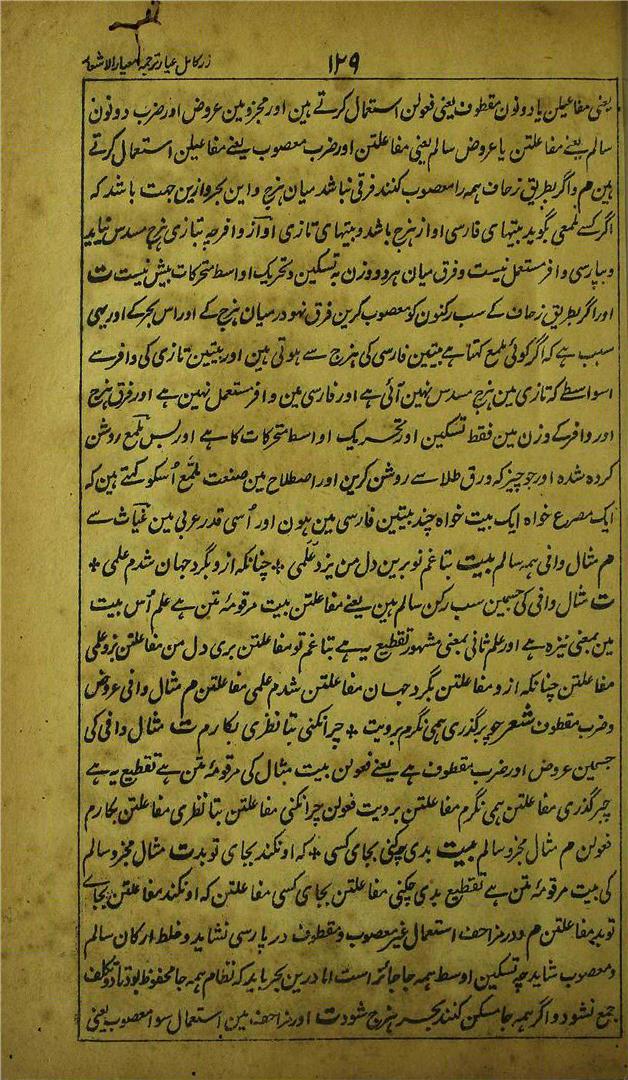 زر کامل عیار ترجمہ معیار الاشعار
۱۲۹
یعنی مفاعیلن یا دونون مقطوف یعنی فعولن استعمال کرتے ہین اور مجزو مین عروض اور ضرب دونون
سالم یعنے مفاعلتن یا عروض سالم یعنی مفاعلتن اور ضرب معصوب یعنے مفاعیلن استعمال کرتے
ہین م و اگر بطریق زحاف ہمہ را معصوب کنند فرقی نباشد میان ہزج و این بحر و ازین جہت باشد کہ
اگر کسے ملمعی گوید بیتہای فارسی او از ہزج باشد و بیتہای تازی او از وافر چہ بتازی ہزج مسدس نیاید
و بپارسی وافر مستعمل نیست و فرق میان ہر دو وزن بہ تسکین و تحریک اواسط متحرکات بیش نیست ت
اور اگر بطریق زحاف کے سب رکنون کو معصوب کرین فرق نہو درمیان ہزج کے اور اس بحر کے اور یہی
سبب ہے کہ اگر کوئی ملمع کہتا ہے بیتین فارسی کی ہزج سے ہوتی ہین اور بیتین تازی کی وافر سے
اسواسطے کہ تازی مین ہزج مسدس نہین آئی ہے اور فارسی مین وافر مستعمل نہین ہے اور فرق ہزج
اور وافر کے وزن مین فقط تسکین اور تحریک اواسط متحرکات کا ہے اور بس ملمع روشن
کردہ شدہ اور جو چیز کہ ورق طلا سے روشن کرین اور اصطلاح مین صنعت ملمع اُسکو کہتے ہین کہ
ایک مصرع خواہ ایک بیت خواہ چند بیتین فارسی مین ہون اور اُسی قدر عربی مین غیاث سے
م مثال وافی ہمہ سالم بیت بتا غم تو برین دل من یزد علمی + چنانکہ ازو بگرد جہان شدم علمی +
ت مثال وافی کی جسمین سب رکن سالم ہین یعنے مفاعلتن بیت مرقومۂ متن ہے علم اُس بیت
مین بمعنی نیزہ ہے اور علم ثانی بمعنی مشہور تقطیع یہ ہے بتا غم تو مفاعلتن بری دل من مفاعلتن یزد علمی
مفاعلتن چنانکہ ازو مفاعلتن بگرد جہان مفاعلتن شدم علمی مفاعلتن م مثال وافی عروض
و ضرب مقطوف شعر چو برگذری ہمی نگرم برویت + چرا نکنی بتا نظری بکارم ت مثال وافی کی
جسمین عروض اور ضرب مقطوف ہے یعنے فعولن بیت مثال کی مرقومۂ متن ہے تقطیع یہ ہے
چبرگذری مفاعلتن ہمی نگرم مفاعلتن برویت فعولن چرا نکنی مفاعلتن بتا نظری مفاعلتن بکارم
فعولن م مثال مجزو سالم بیت بدی چکنی بجای کسی + کہ او نکند بجای تو بد ت مثال مجزو سالم
کی بیت مرقومۂ متن ہے تقطیع بدی چکنی مفاعلتن بجای کسی مفاعلتن کہ او نکند مفاعلتن بجاے
تو بد مفاعلتن م و در مزاحف استعمال غیر معصوب و مقطوف در پارسی نشاید و خلط ارکان سالم
و معصوب شاید چہ تسکین اوسط ہمہ جا جائز است اما درین بحر باید کہ نظام ہمہ جا محفوظ بود تا دو تکلف
جمع نشود و اگر ہمہ جا مسکن کنند بحر ہزج شود ت اور مزاحف مین استعمال سوا معصوب یعنی